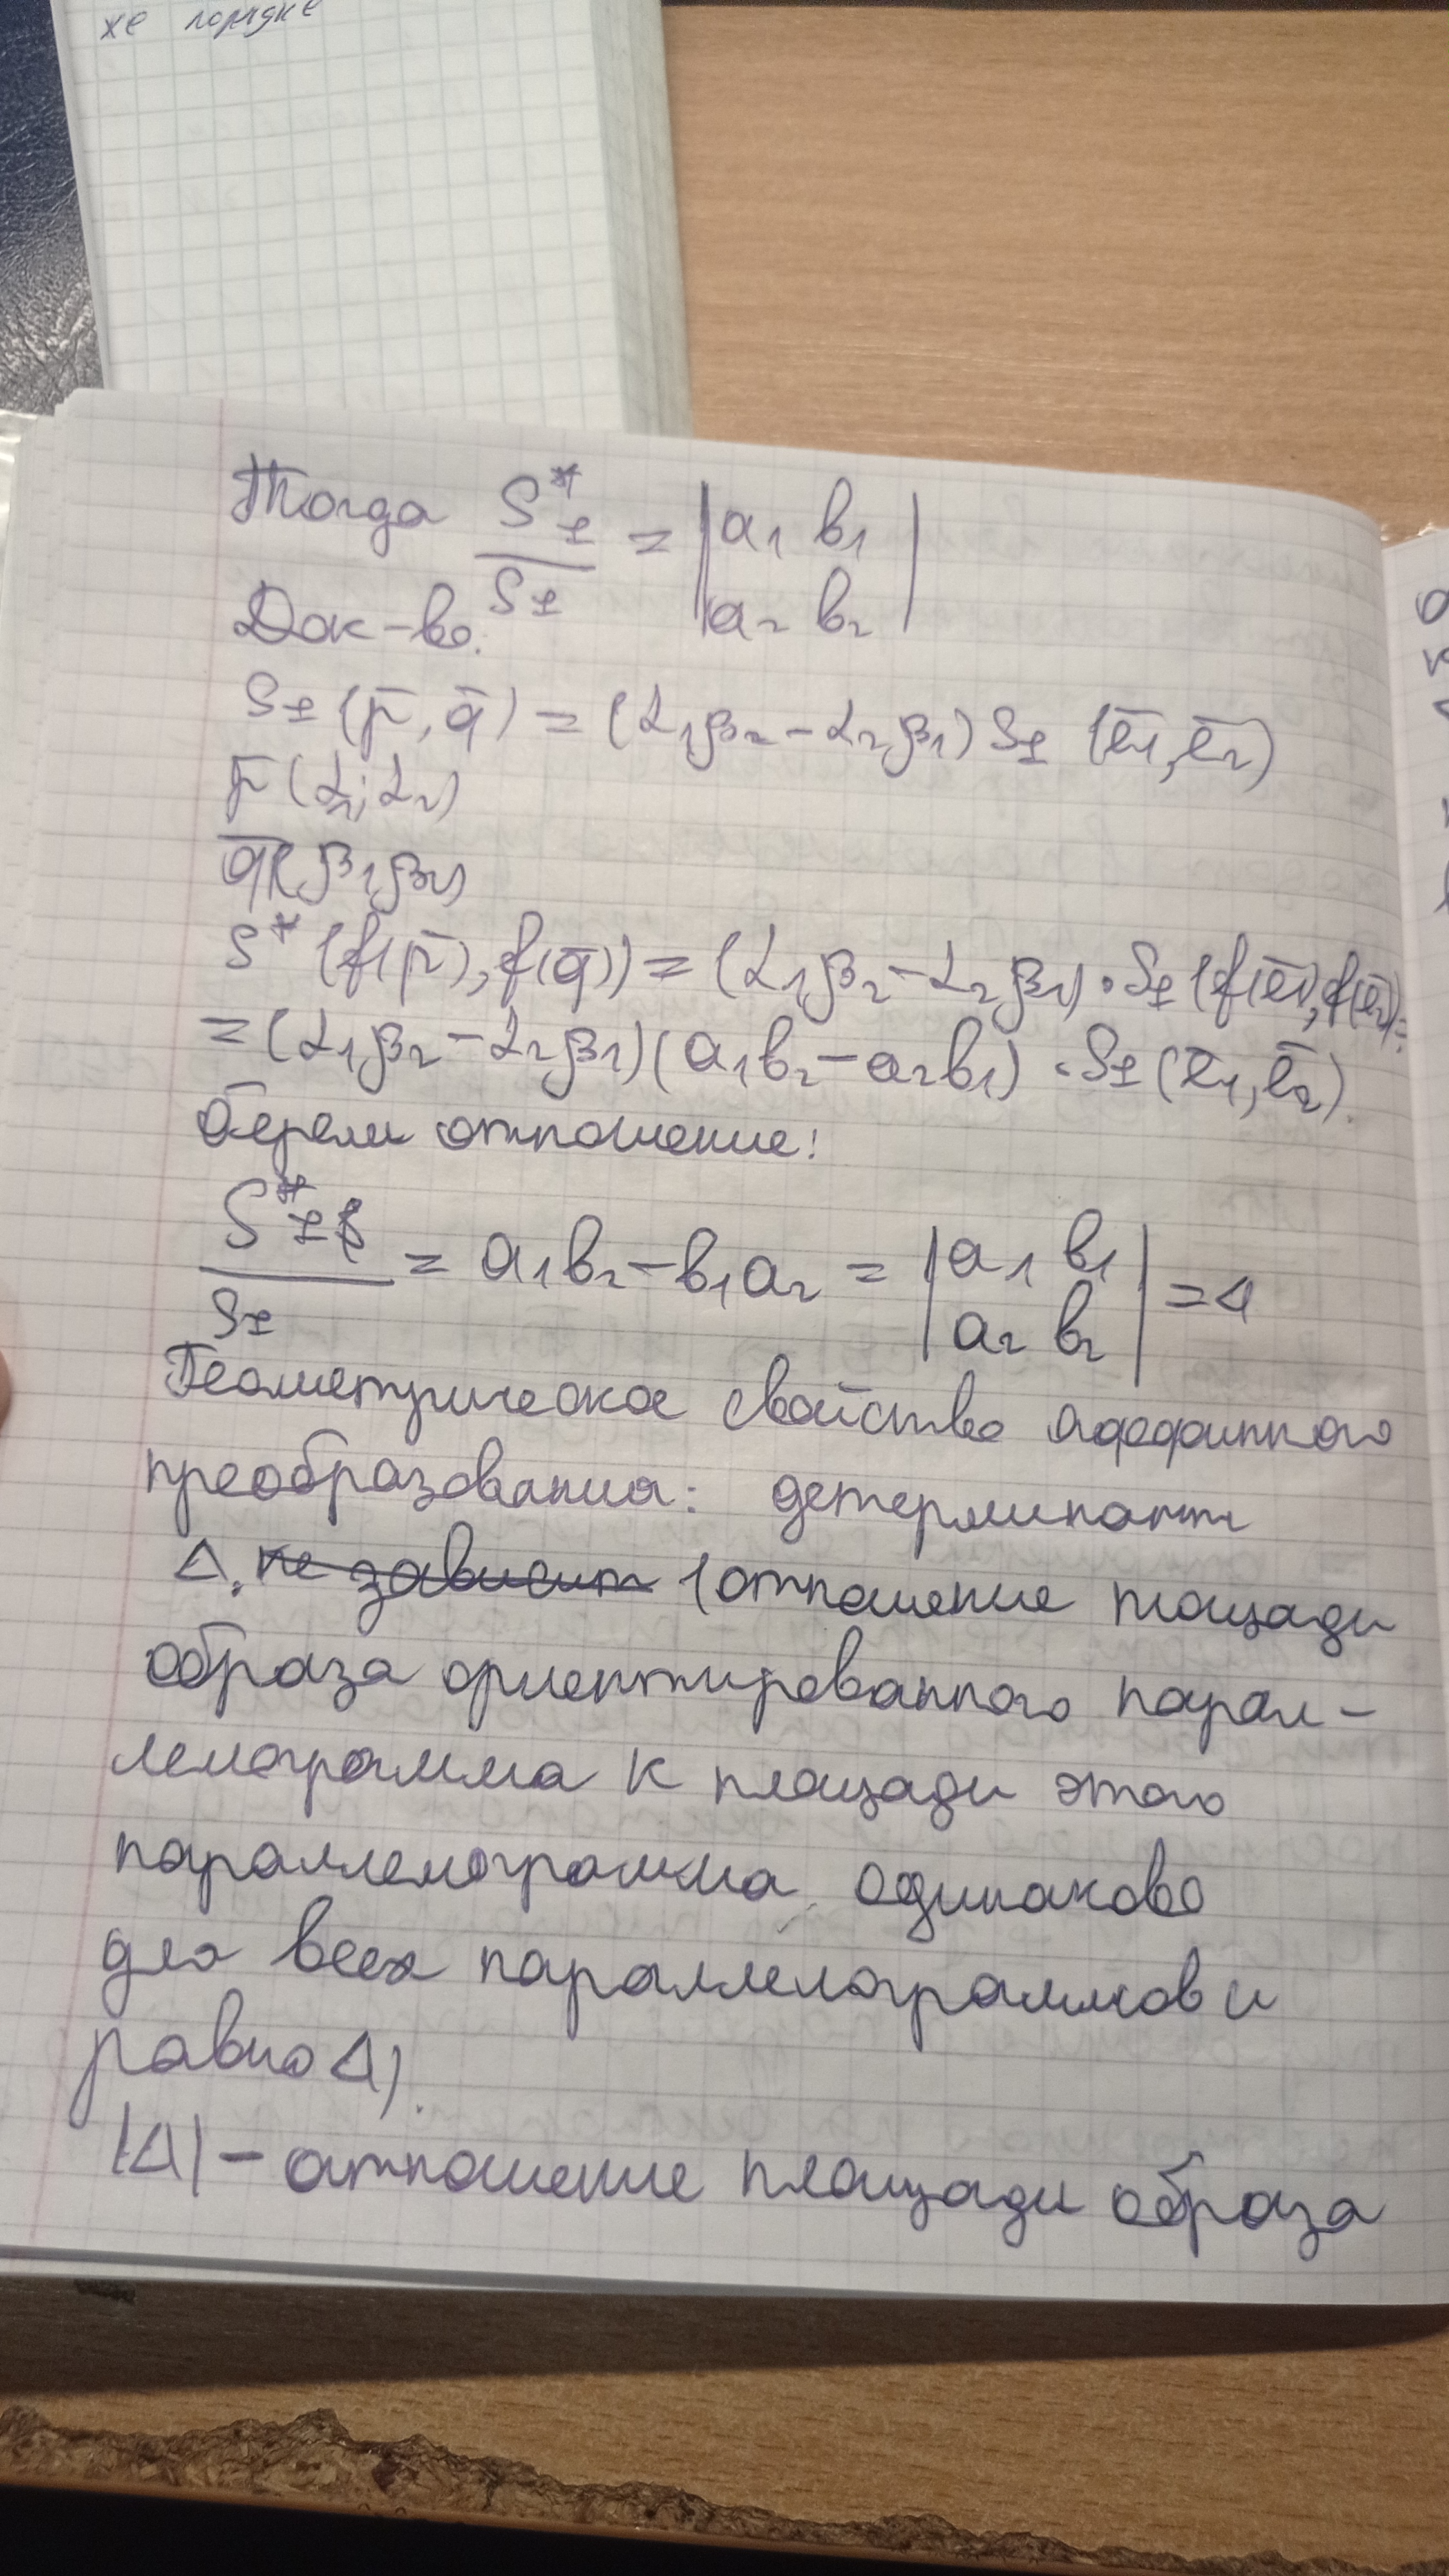 же порядке
Тогда S*± / S± = | a₁ b₁ |
| a₂ b₂ |
Док-во.
S± (p̄, q̄) = (α₁β₂ − α₂β₁) S± (ē₁, ē₂)
p̄ (α₁; α₂)
q̄ (β₁, β₂)
S* (f(p̄), f(q̄)) = (α₁β₂ − α₂β₁) · S± (f(ē₁), f(ē₂)) =
= (α₁β₂ − α₂β₁)(a₁b₂ − a₂b₁) · S± (ē₁, ē₂).
берем отношение:
S*± / S± = a₁b₂ − b₁a₂ = | a₁ b₁ | = Δ
| a₂ b₂ |
Геометрическое свойство аффинного
преобразования: детерминант
Δ. не зависит (отношение площади
образа ориентированного парал-
лелограмма к площади этого
параллелограмма, одинаково
для всех параллелограммов и
равно Δ).
|Δ| – отношение площади образа